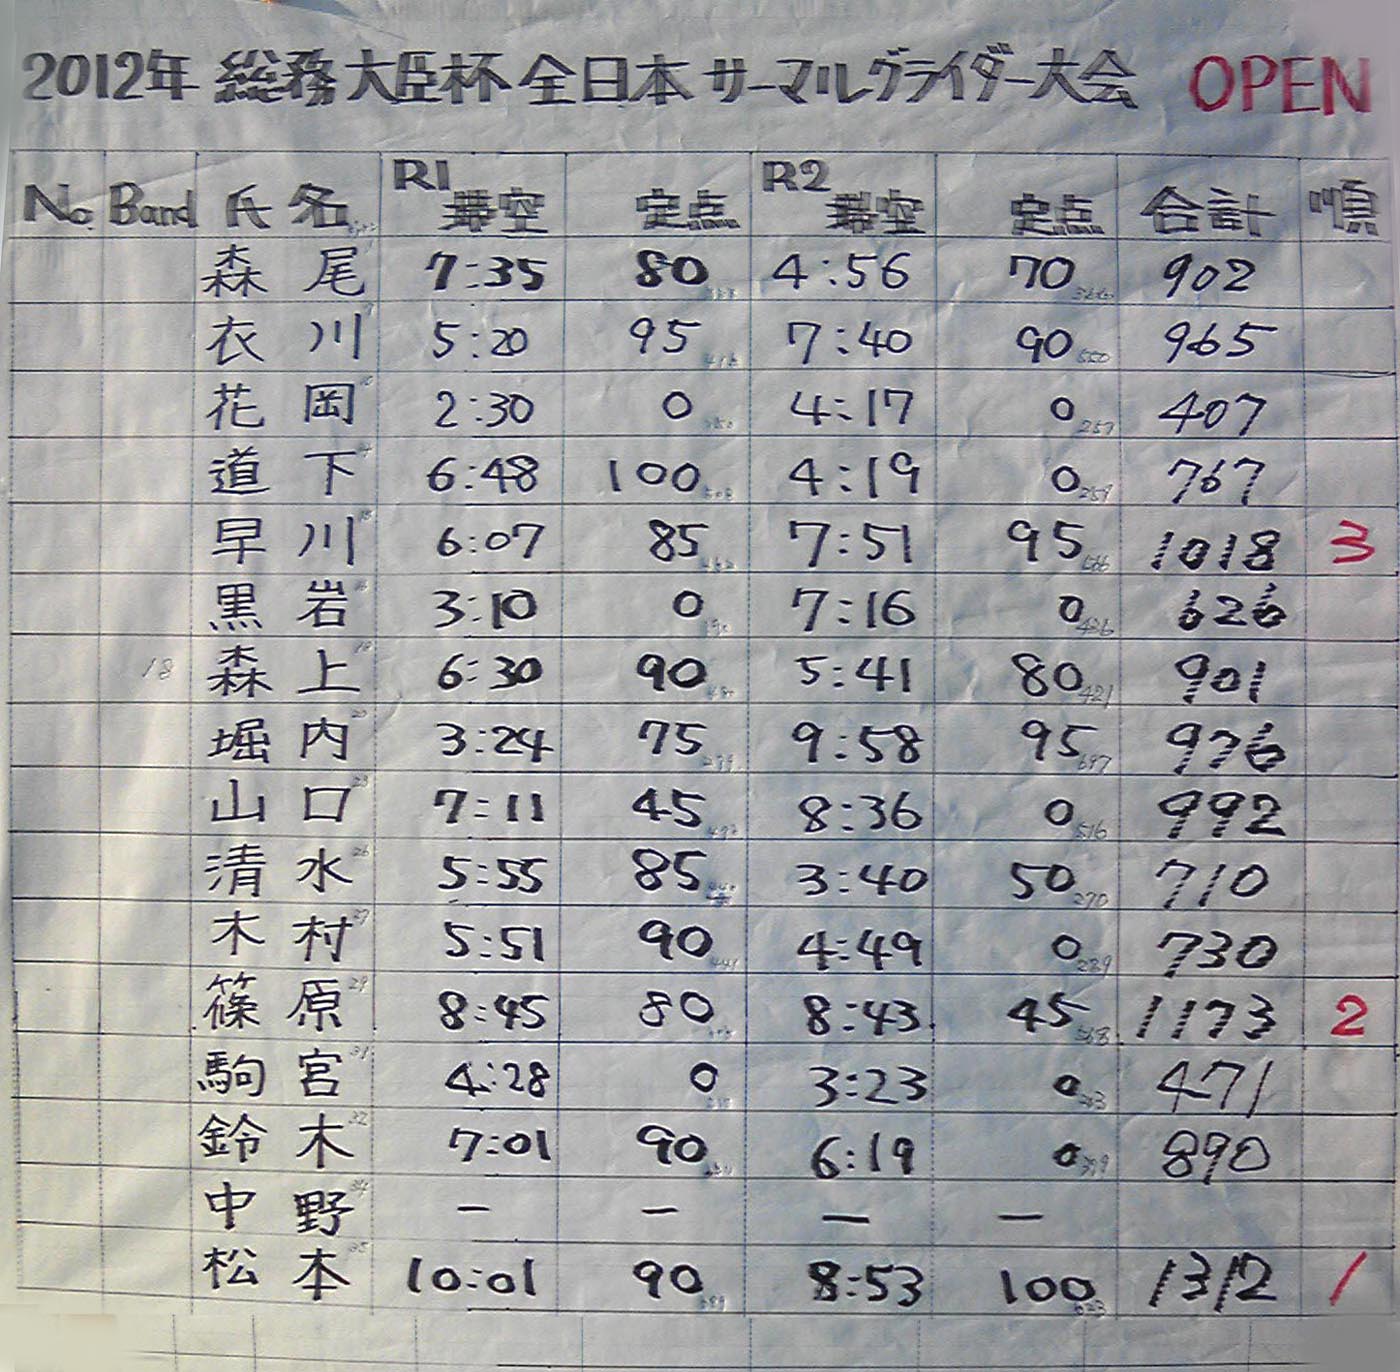 2012年 総務大臣杯全日本サーマルグライダー大会 OPEN
No. Band 氏名 R1 滞空 定点 R2 滞空 定点 合計 順
森尾 7:35 80 4:56 70 902
衣川 5:20 95 7:40 90 965
花岡 2:30 0 4:17 0 407
道下 6:48 100 4:19 0 767
早川 6:07 85 7:51 95 1018 3
黒岩 3:10 0 7:16 0 626
18 森上 6:30 90 5:41 80 901
堀内 3:24 75 9:58 95 976
山口 7:11 45 8:36 0 992
清水 5:55 85 3:40 50 710
木村 5:51 90 4:49 0 730
篠原 8:45 80 8:43 45 1173 2
駒宮 4:28 0 3:23 0 471
鈴木 7:01 90 6:19 0 890
中野 - - - -
松本 10:01 90 8:53 100 1312 1